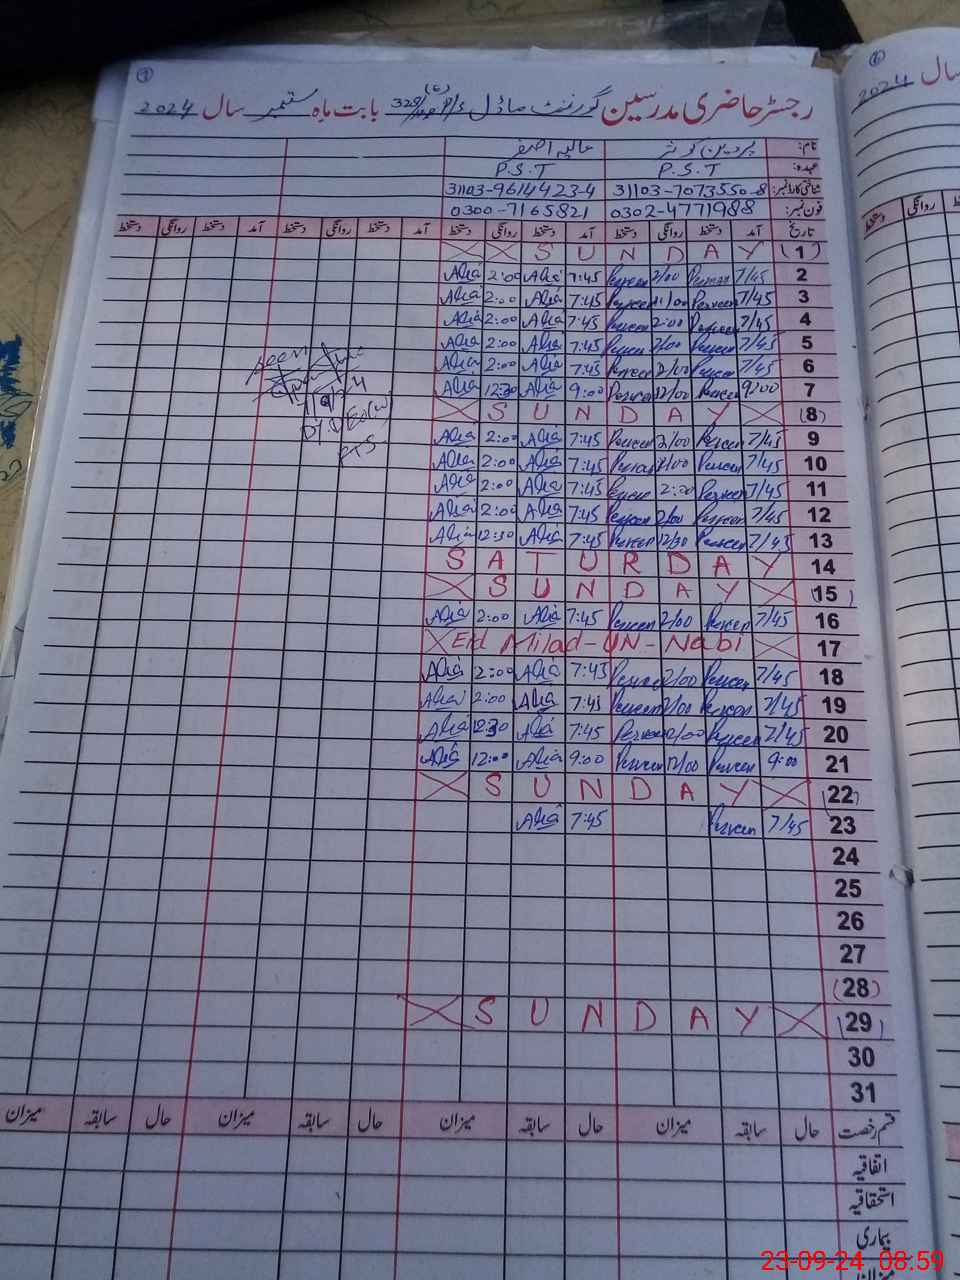 رجسٹر حاضری مدرسین گورنمنٹ ماڈل P/S بابت ماہ ستمبر سال 2024
نام: پروین کوثر عالیہ اصغر
عہدہ: P.S.T P.S.T
شناختی کارڈ نمبر: 31103-7073550-8 31103-9614423-4
فون نمبر: 0302-4771988 0300-7165821
تاریخ آمد دستخط روانگی دستخط آمد دستخط روانگی دستخط آمد دستخط روانگی دستخط آمد دستخط روانگی دستخط
SUNDAY (1)
Alia 2:00 Alia 7:45 Perveen 2/00 Perveen 7/45 2
Alia 2:00 Alia 7:45 Perveen Perveen 7/45 3
Alia 2:00 Alia 7:45 Perveen 2:00 Perveen 7/45 4
Alia 2:00 Alia 7:45 Perveen 2/00 Perveen 7/45 5
Alia 2:00 Alia 7:45 Perveen 2/00 Perveen 7/45 6
Alia 12:30 Alia 9:00 Perveen 12/00 Perveen 9:00 7
SUNDAY (8)
Alia 2:00 Alia 7:45 Perveen 2/00 Perveen 7/45 9
Alia 2:00 Alia 7:45 Perveen 2/00 Perveen 7/45 10
Alia 2:00 Alia 7:45 Perveen 2:00 Perveen 7/45 11
Alia 2:00 Alia 7:45 Perveen 2/00 Perveen 7/45 12
Alia 12:30 Alia 7:45 Perveen 12/30 Perveen 7/45 13
SATURDAY 14
SUNDAY (15)
Alia 2:00 Alia 7:45 Perveen 2/00 Perveen 7/45 16
Eid Milad-UN-Nabi 17
Alia 2:00 Alia 7:45 Perveen 2/00 Perveen 7/45 18
Alia 2:00 Alia 7:45 Perveen 2/00 Perveen 7/45 19
Alia 12:30 Alia 7:45 Perveen Perveen 7/45 20
Alia 12:00 Alia 9:00 Perveen 12/00 Perveen 9:00 21
SUNDAY (22)
Alia 7:45 Perveen 7/45 23
24
25
26
27
(28)
SUNDAY (29)
30
31
قسم رخصت حال سابقہ میزان حال سابقہ میزان حال سابقہ میزان حال سابقہ میزان
اتفاقیہ
استحقاقیہ
بیماری
میزان
seen
سال 2024
دستخط روانگی
23-09-24 08:59